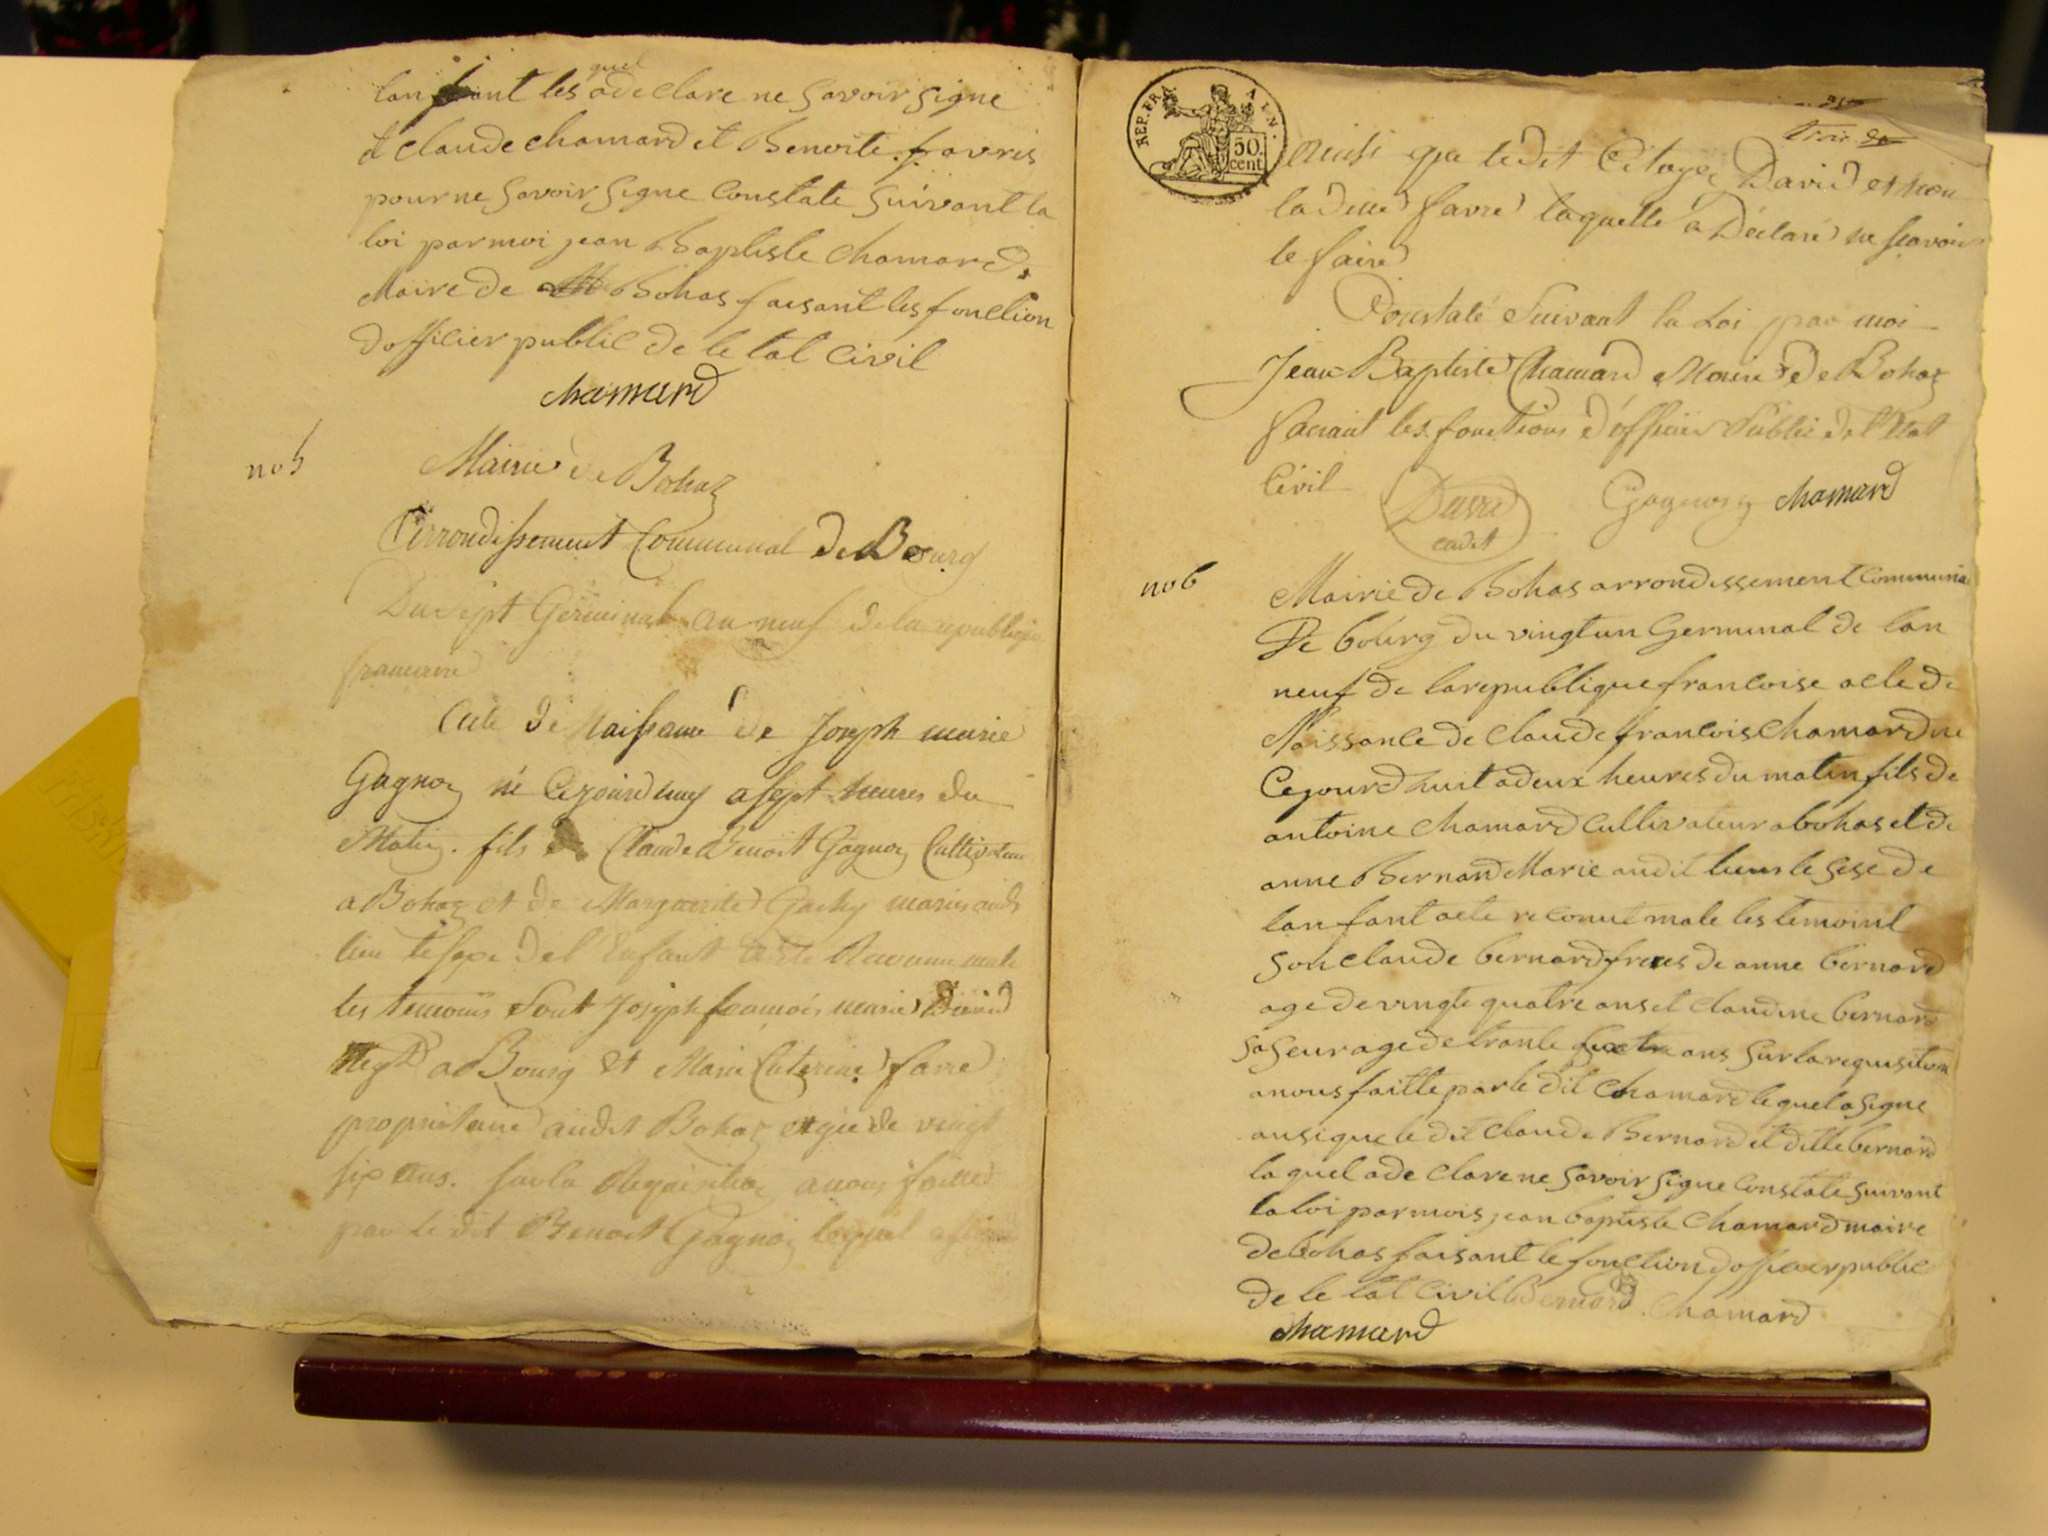 quel
lanfant les a de clare ne savoir signe
et claude chamard et Benoite favres
pour ne savoir signe Constate suivant la
loi par moi jean Baptiste chamard
Maire de Bohas faisant les fonction
dofficier public de le tat Civil
chamard
no 5
Mairie de Bohaz
arrondissement Communal de Bourg
Du sept Germinal an neuf de la republique
francaise
acte de Naissance de Joseph marie
Gagnoz né Cejourdhuy a sept heures du
Matin. fils de Claude Benoit Gagnoz Cultivateur
a Bohaz et de Margueritte Gachy mariés audt
lieu le sexe de l'Enfant a été Reconnu male
les temoins sont Joseph francois marie David
Negt a Bourg et Marie Caterine favre
propriétaire audit Bohaz agée de vingt
six ans. sur la Requisition a nous faitte
par le dit Benoit Gagnoz lequel a signé
REP. FRA
50
cent
ainsi que ledit Citoyen David et non
la ditte favre laquelle a Déclaré ne scavoir
le faire
Constaté Suivant la Loi par moi
Jean Baptiste Chamard Maire de Bohaz
faisant les fonctions d'officier Public de l'Etat
Civil
David Gagnoz chamard
cadet
no 6
Mairie de Bohas arrondissement Communal
De bourg du vingt un Germinal de lan
neuf de la republique francoise acle de
Naissance de claude francois chamard ne
Cejourdhuit a deux heures du matin fils de
antoine chamard Cultivateur a bohas et de
anne Bernard Marie audit lieus le sese de
lanfant aete reconut male les temoint
son claude bernard freres de anne bernard
age de vingte quatre ans et claudine bernard
sa seur age de trante ans sur la requisition
a nous faitte par le dit chamard le quel a signe
ansi que le dit claude Bernard et ditte bernard
la quel a de clare ne savoir signe Constate suivant
la loi par mois jean baptiste chamard maire
de bohas faisant le fonction dofficier public
de le tat Civil Bernard chamard
chamard